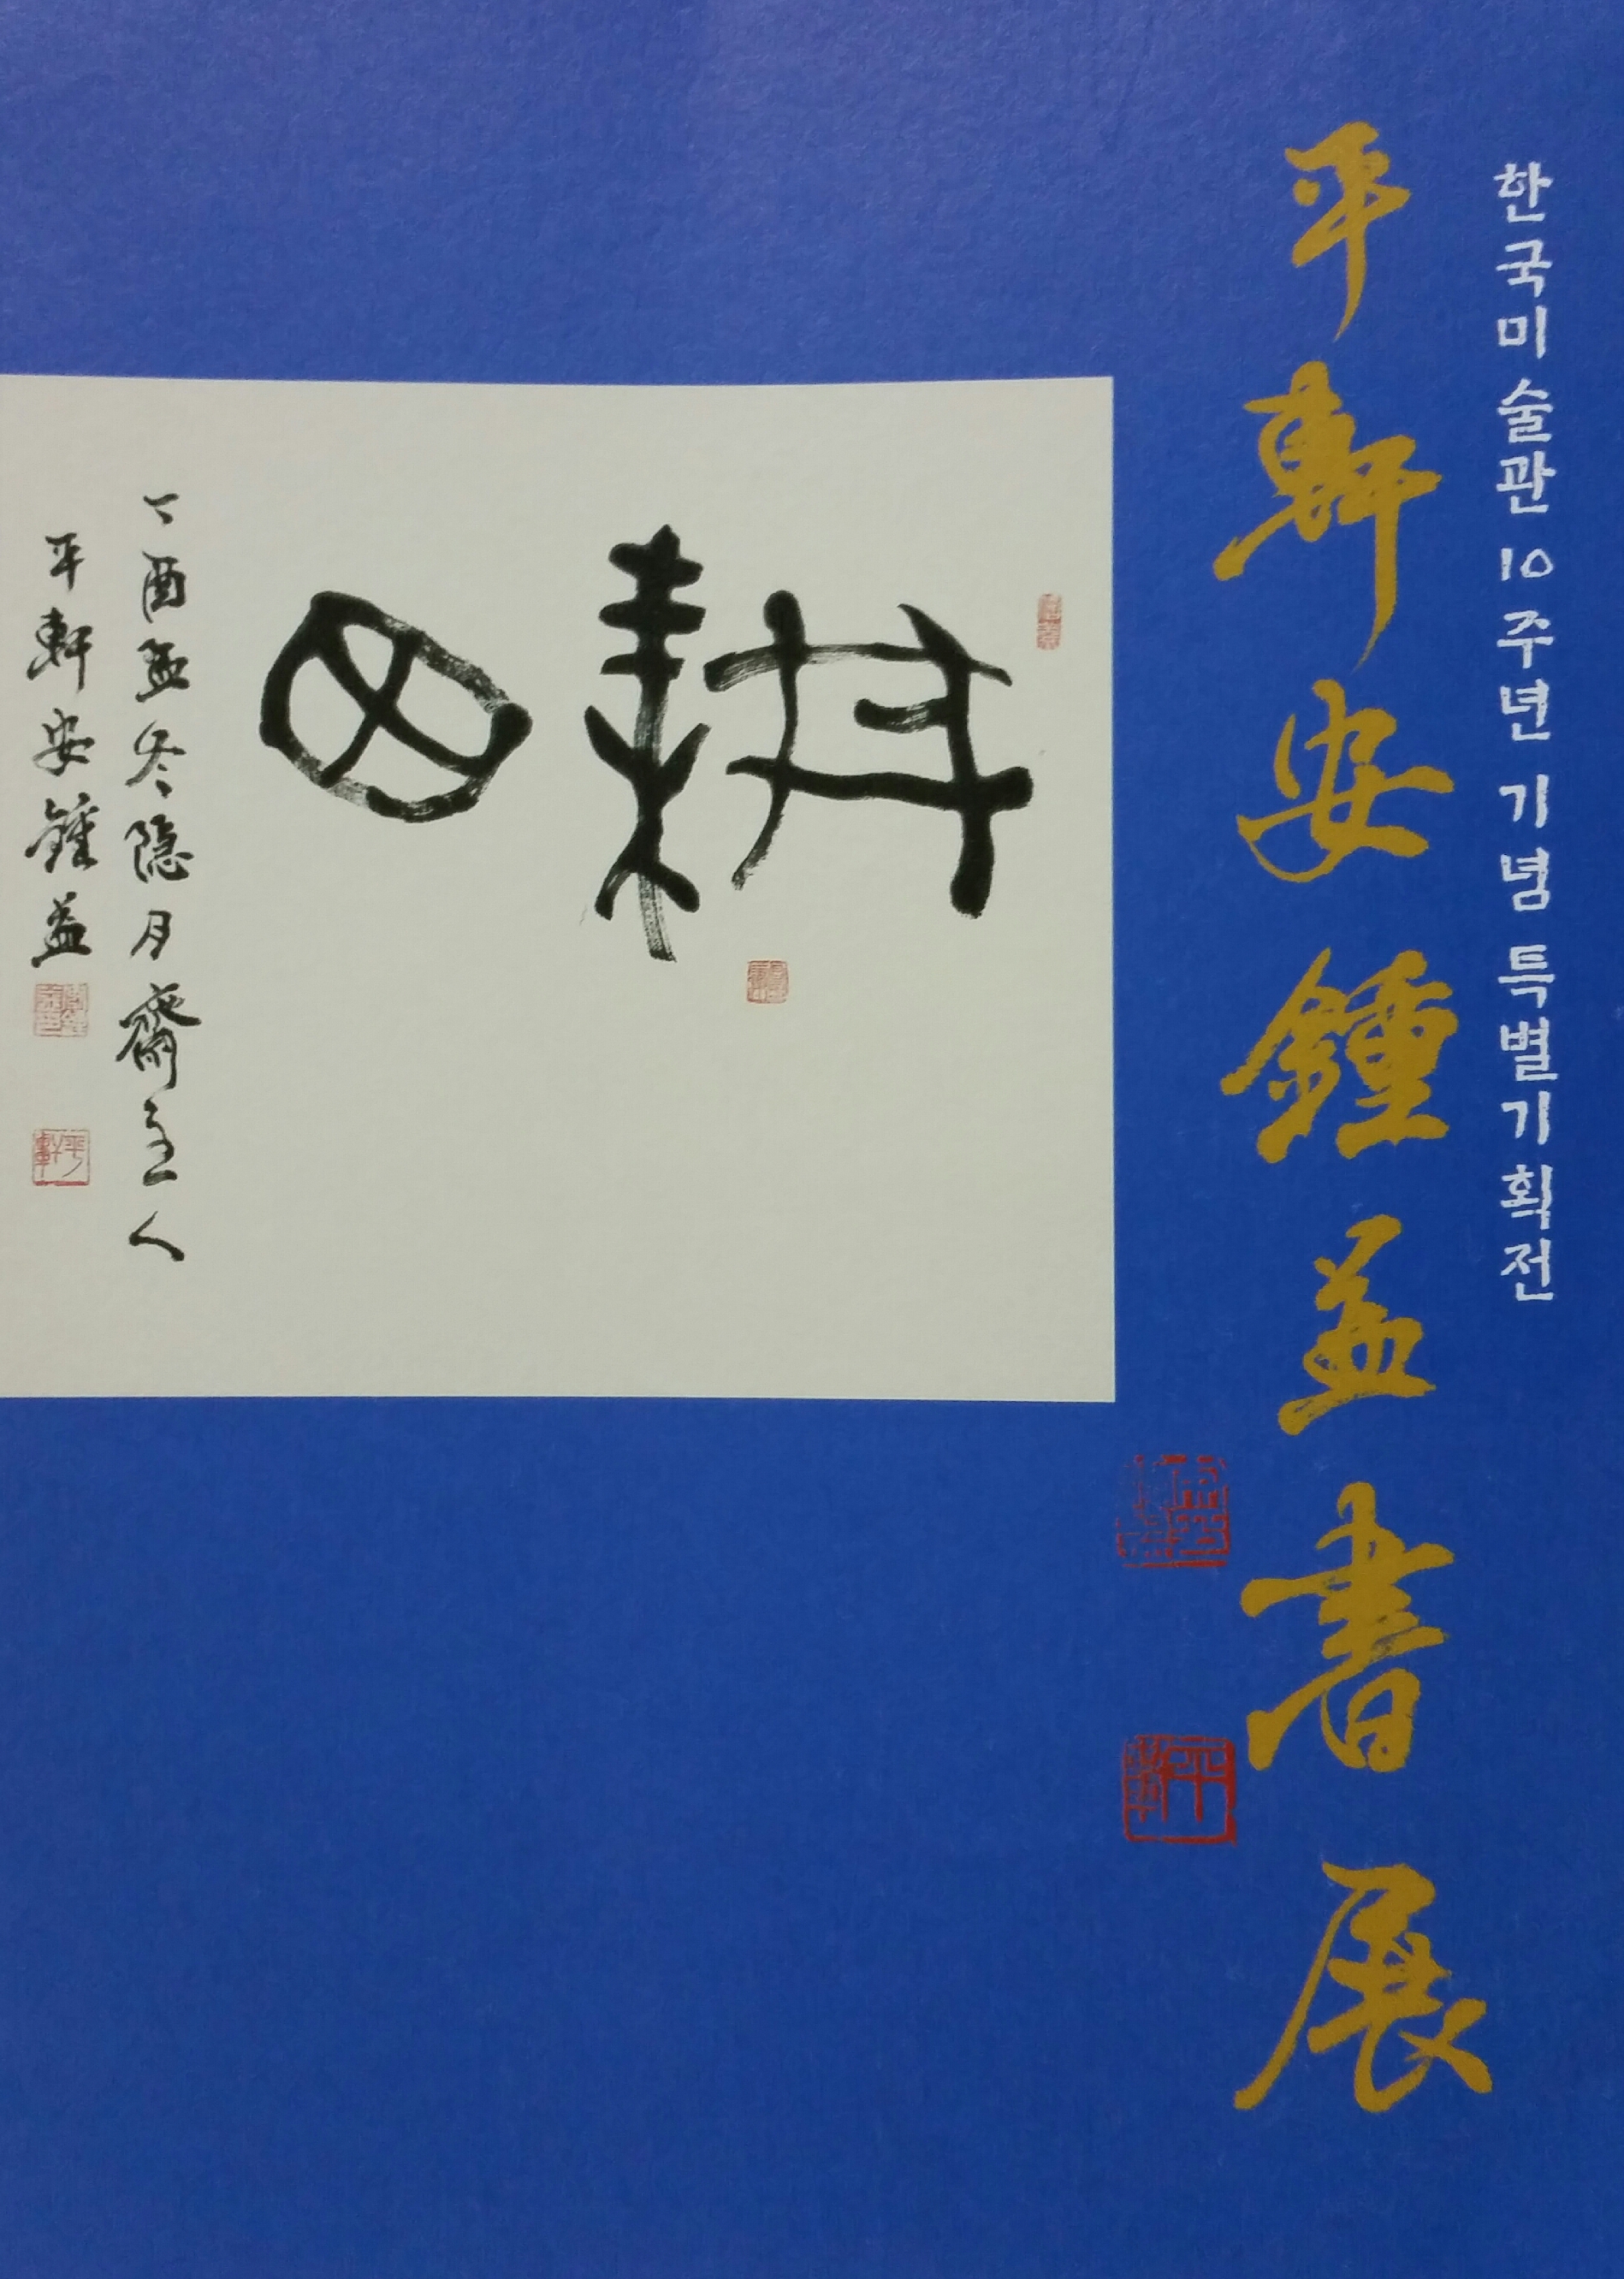 한국미술관 10주년 기념 특별기획전
平軒安鍾益書展
丁酉孟冬隐月齋主人
平軒安鍾益
平軒
平軒